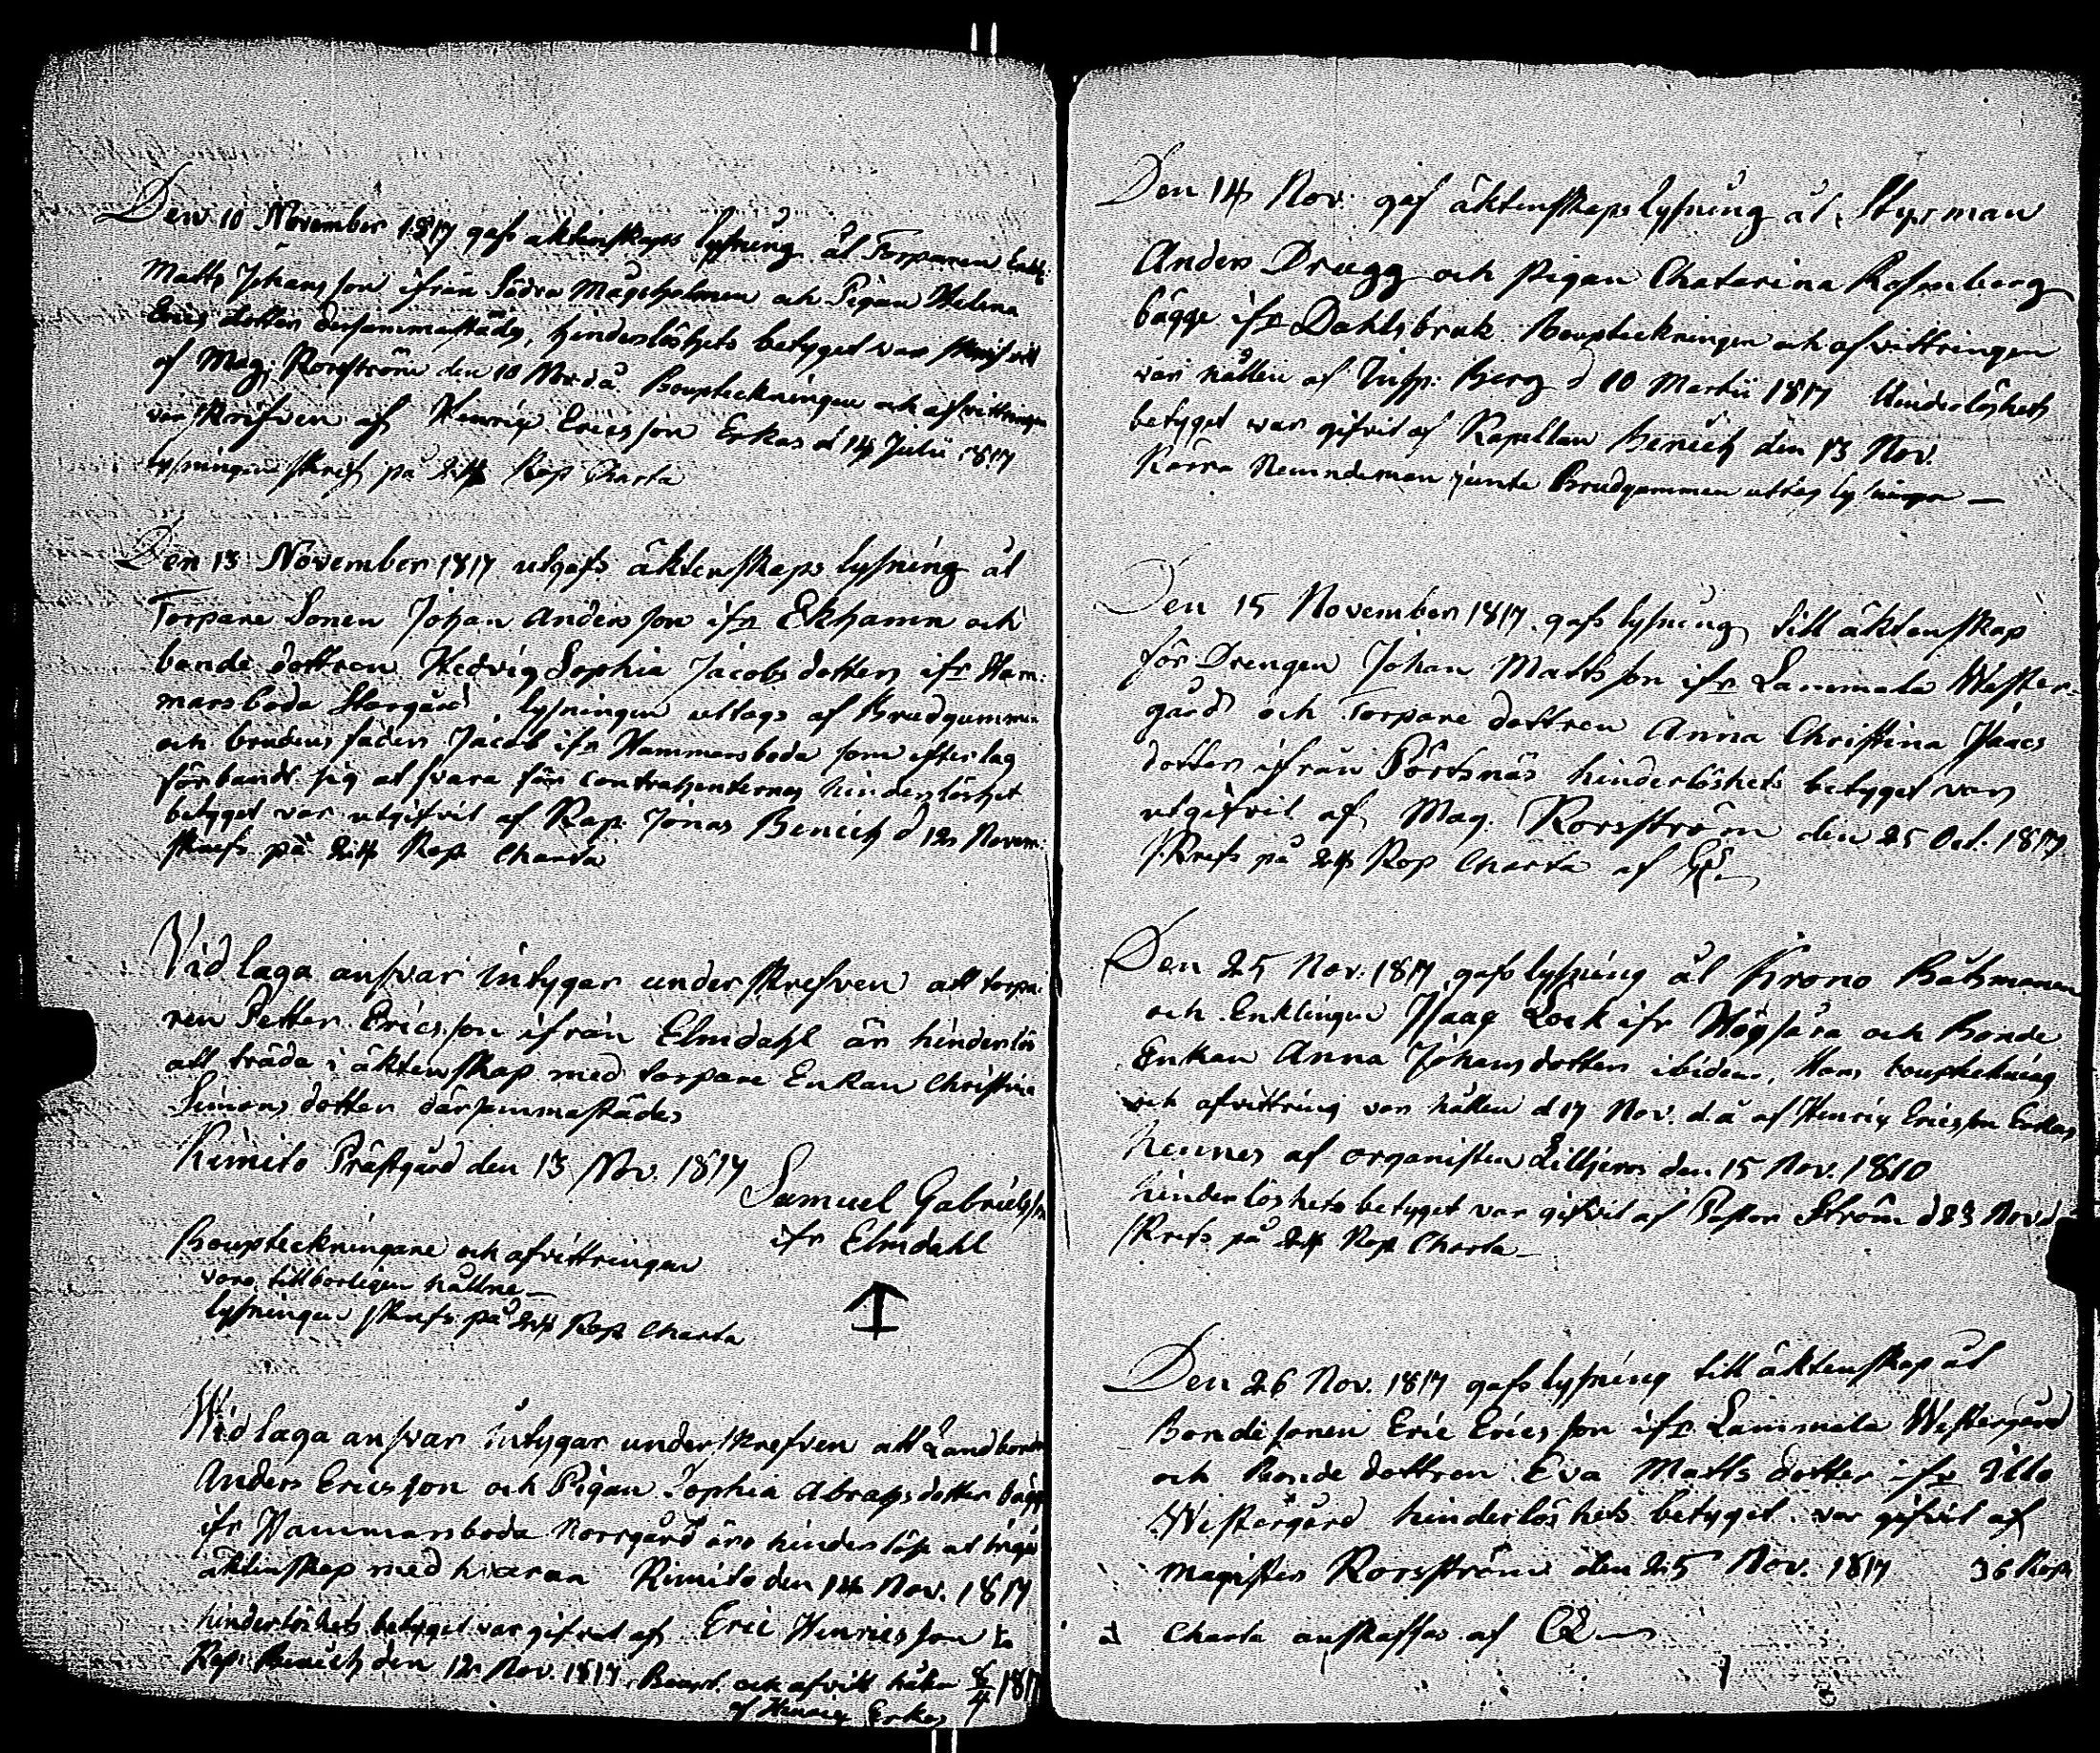 Den 10 November 1817 gafs äktenskaps lysning åt Torparen Enkl:
Matts Johansson ifrån Södra Mågsholmen och Pigan Helena
Erics dotter dersammastädes, hinderlöshets betyget var skrifvit
af Mag: Rorström den 10 Nov. d.å. Bouptekningen och afvittringen
var skrifven af Henrix Ericsson Erkas d 14 Julii 1817
lysningen skrefs på 24 Kop Charta
Den 13 November 1817 utgafs äktenskaps lysning åt
Torpare Sonen Johan Andersson ifr Ekhamn och
bonde dottren Hedvig Sophia Jacobs dotter ifr Ham:
marsboda Storgård lysningen uttogs af Brudgummen
och brudens fader Jacob ifr Hammarsboda som efter lag
förbandt sig at svara för contrahenternas hinderlöshet
betyget var utgifvit af Kap. Jonas Benich d 12 Novem:
skrefs på 24 Kop Charta
Vid laga ansvar intygar underskrefven att torpa:
ren Petter Ericsson ifrån Elmdahl är hinderlös
att träda i äktenskap med torpare Enkan Christina
Simons dotter därsammastädes
Kimito Prästgård den 13 Nov. 1817
Samuel Gabrielsson
ifr Elmdahl
Bouptekningarne och afvittringen
voro tillborligen hållne
lysningen skrefs på 24 Kop Charta
Wid laga ansvar intygar underskrefven att Landbonden
Anders Ericsson och Pigan Sophia Abrahs dotter bägge
ifr Hammarsboda Norrgård äro hinderlöse at ingå
äktenskap med hvaran Kimito den 14 Nov. 1817
hinderlöshets betyget var gifvet af Eric Henricsson
Kap: Benich den 12 Nov. 1817. Bouspt. och afvitt hållen 8/4 1817
af Henrix Erkas
Den 14 Nov. gafs äktenskaps lysning åt Styrman
Anders Drugg och pigan Chatarina Rosenberg
bägge ifr Dahlsbruk. Bouptekningen och afvittringen
var hållen af Insp: Berg d 10 Martii 1817 Hinderlöshets
betyget war gifvit af Kapellan Benich den 13 Nov.
Kärra Nemndeman jemte Brudgummen uttog lysningen
Den 15 November 1817 gafs lysning till äktenskap
för Drengen Johan Mattsson ifr Lammala Wester-
gård och Torpare dottren Anna Christina Isacs
dotter ifrån Pörtsnäs hinderlöshets betyget var
utgifvit af Mag. Rorsström den 25 Oct. 1817
skrefs på 24 Kop Charta af
Den 25 Nov. 1817 gafs lysning åt Krono Båtsmannen
och Enklingen Isaac Rock ifr Högsåra och Bonde
Enkan Anna Johans dotter ibidem, Hans bouptekning
och afvittring var hållen d 17 Nov. d.å af Henrix Ericsson Erkas
hennes af organisten Lilljeros den 15 Nov. 1810
hinderlöshets betyget var gifvit af Pastor Ström d 23 Nov d.å
skrefs på 24 Kop Charta
Den 26 Nov. 1817 gafs lysning till äktenskap åt
Bondesonen Eric Ericsson ifr Lammala Westergård
och Bonde dottren Eva Matts dotter ifr Illo
Westergård hinderlöshets betyget var gifvit af
Magister Rorsström den 25 Nov. 1817 36 Kop
Charta anskaffas af